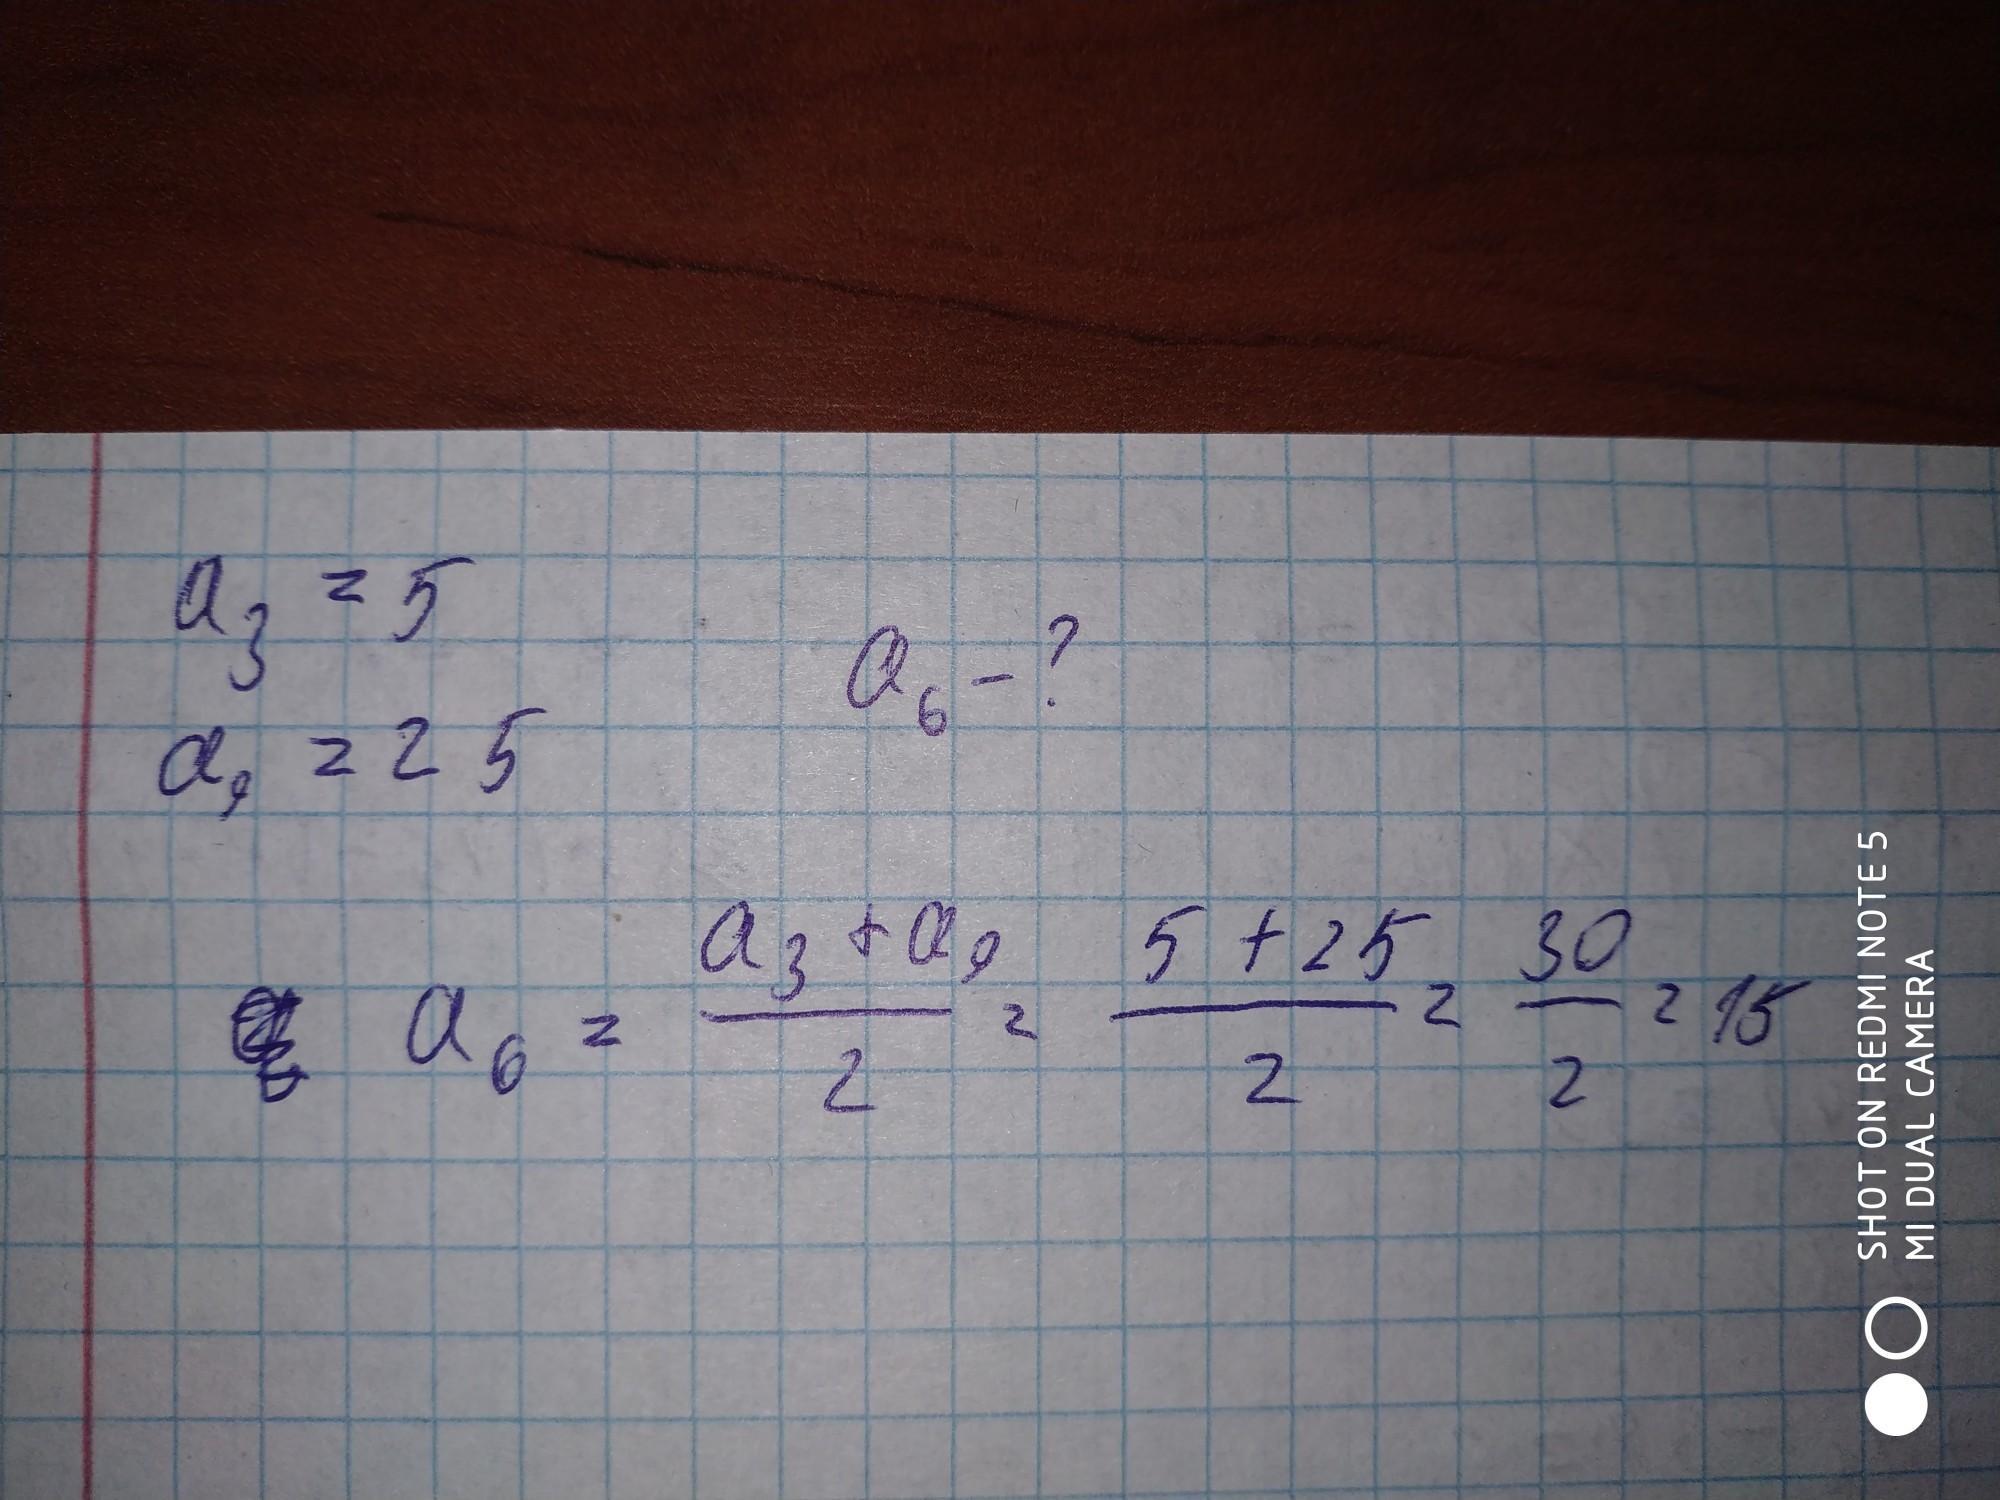 a₃ = 5
a₆ - ?
a₉ = 25
a₆ = (a₃ + a₉)/2 = (5 + 25)/2 = 30/2 = 15
SHOT ON REDMI NOTE 5
MI DUAL CAMERA